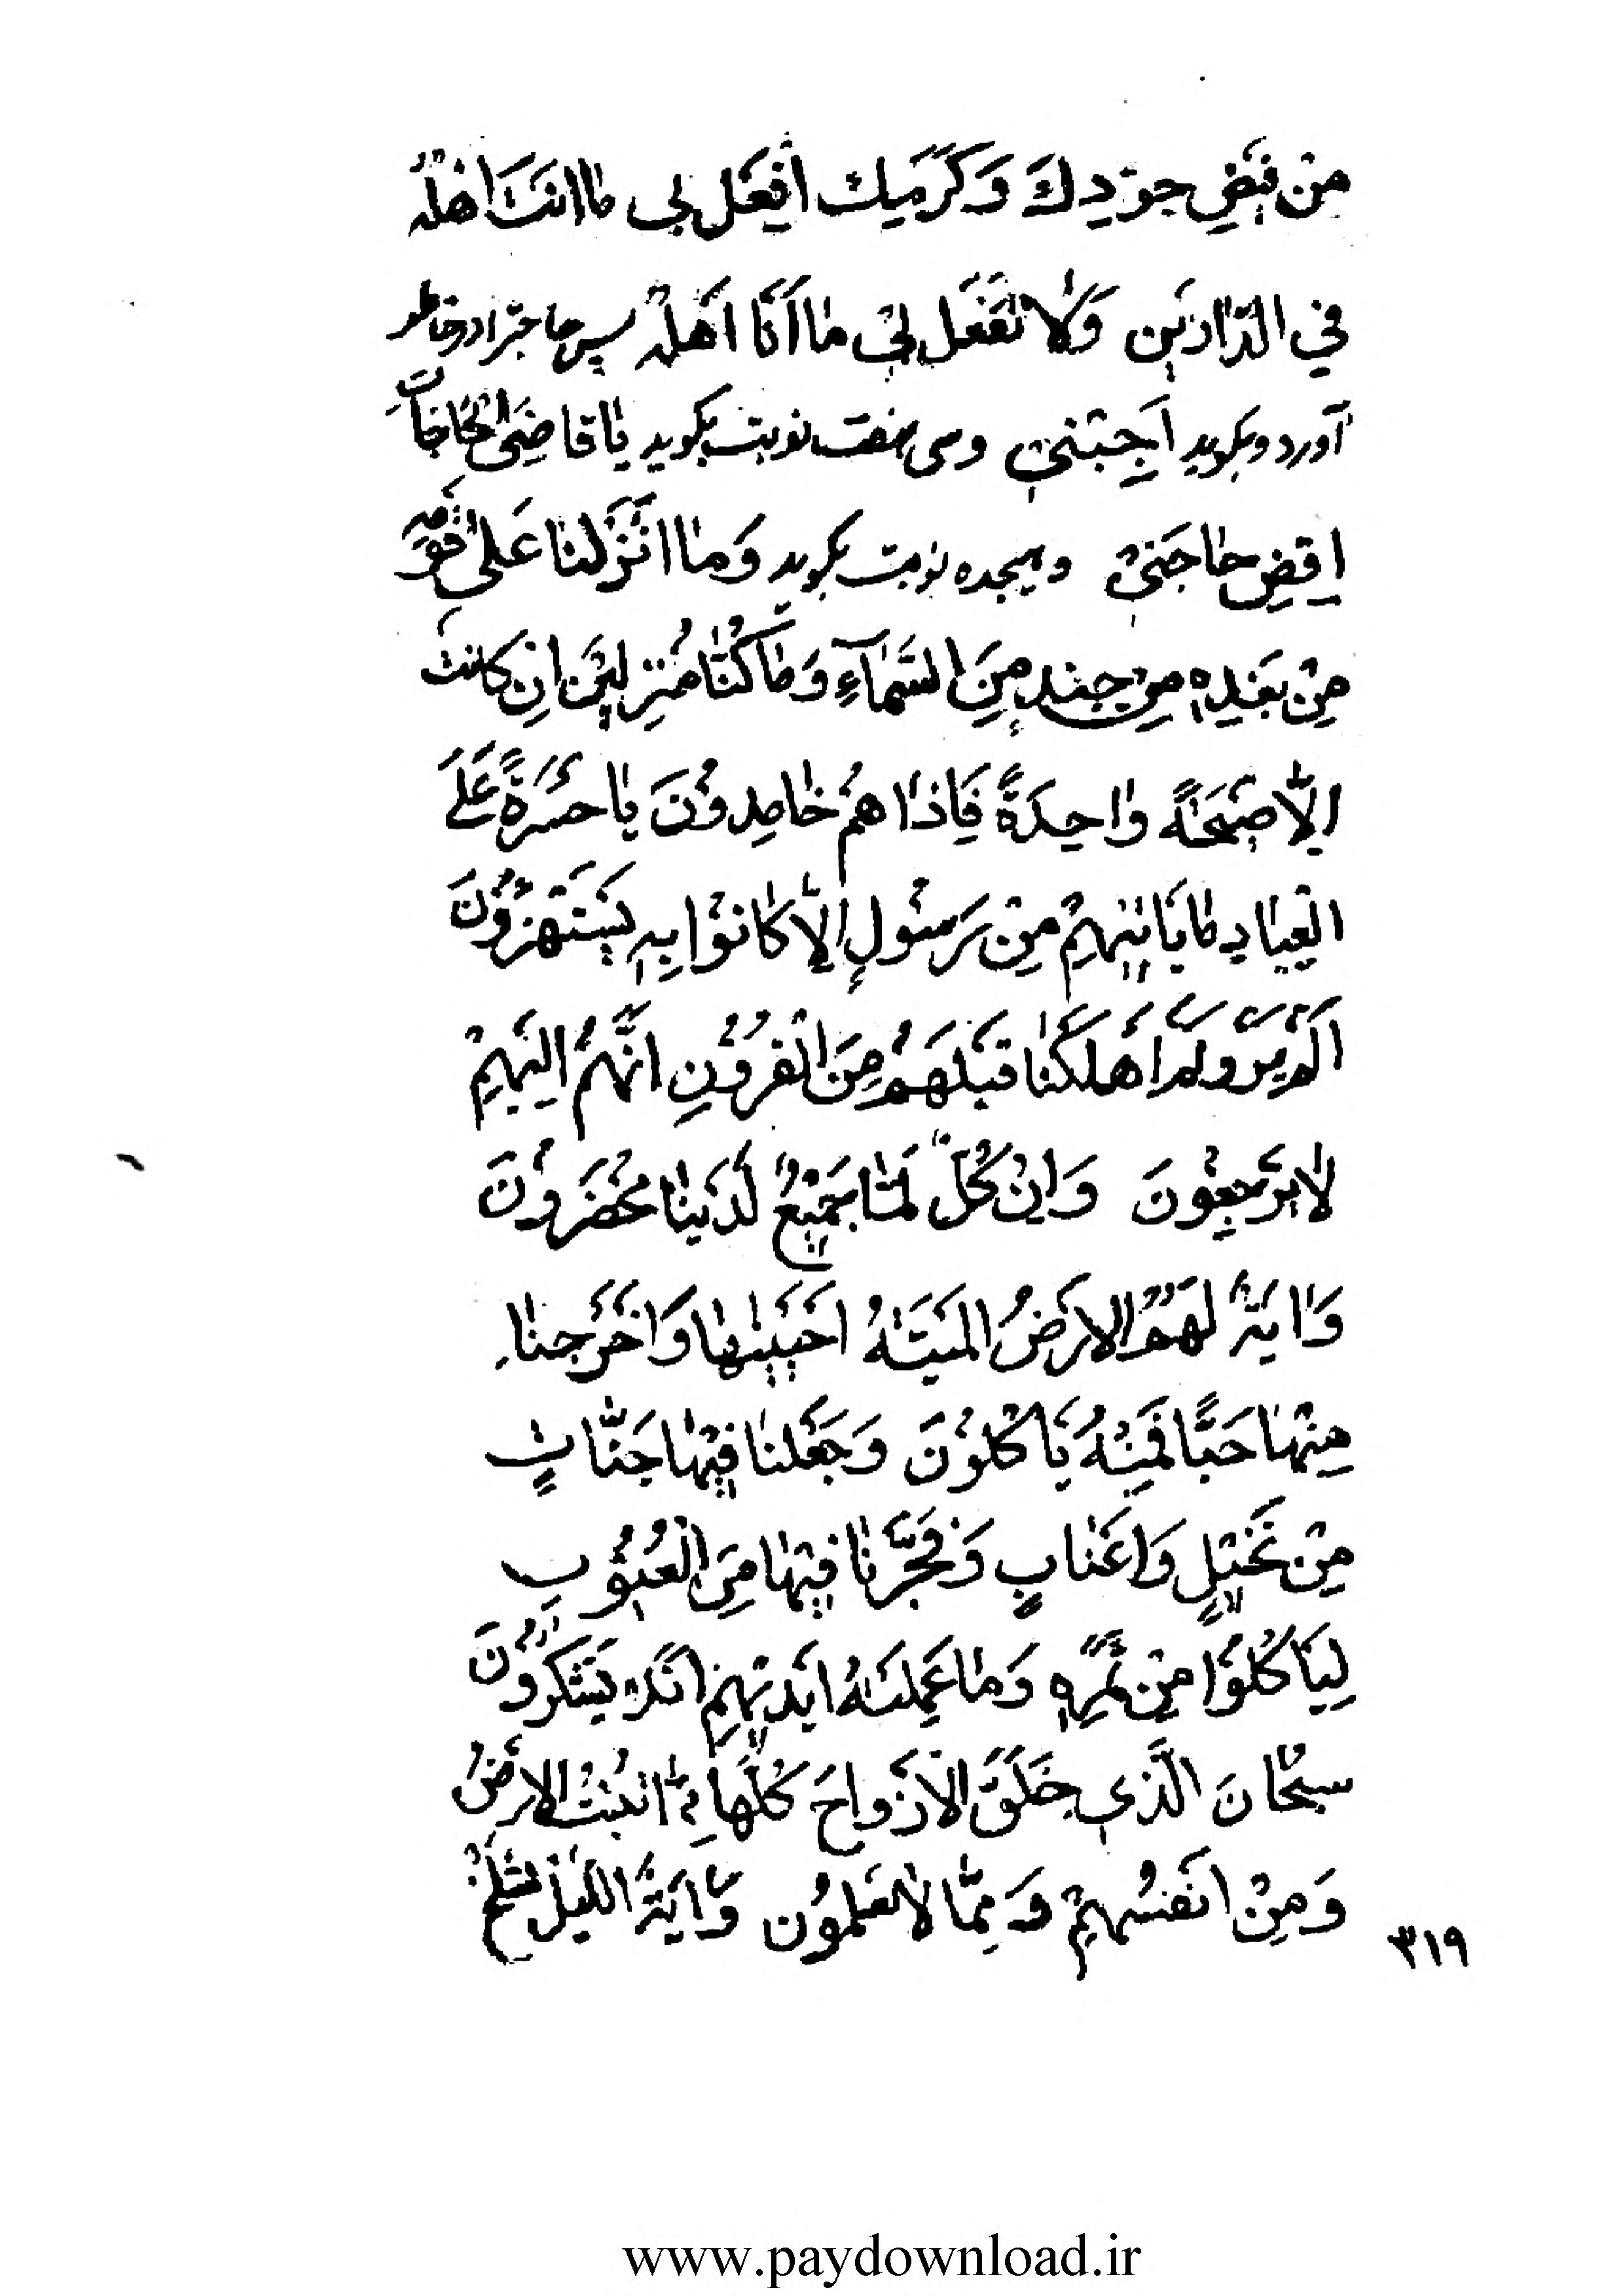 مِنْ فَیْضِ جُوْدِكَ وَكَرَمِكَ اِفْعَل بی مٰا اَنْتَ اَهْلُهُ
فِي الدّٰارَیْنِ وَلٰا تَفْعَل بِيْ مٰا اَنَا اَهْلُهُ پس حاجترا در خاطر
آورد و بگوید اَجِبْنِيْ و سی هفت نوبت بگوید یٰا قٰاضِيَ الْحٰاجٰاتِ
اِقْضِ حٰاجَتِيْ و هیجده نوبت بگوید وَمٰا اَنْزَلْنٰا عَلىٰ قَوْمِهِ
مِنْ بَعْدِهِ مِنْ جُنْدٍ مِنَ السَّمٰآءِ وَمٰا كُنّٰا مُنْزِلِیْنَ اِنْ كانَتْ
اِلّٰا صَیْحَةً وٰاحِدَةً فَاِذٰا هُمْ خٰامِدُوْنَ یٰا حَسْرَةً عَلَى
الْعِبٰادِ مٰا یَاْتِیْهِمْ مِنْ رَسُوْلٍ اِلّٰا كٰانُوْا بِهِ یَسْتَهْزِؤُنَ
اَلَمْ یَرَوْا كَمْ اَهْلَكْنٰا قَبْلَهُمْ مِنَ الْقُرُوْنِ اَنَّهُمْ اِلَیْهِمْ
لٰا یَرْجِعُوْنَ وَاِنْ كُلٌّ لَمّٰا جَمِیْعٌ لَدَیْنٰا مُحْضَرُوْنَ
وَاٰیَةٌ لَهُمُ الْاَرْضُ الْمَیْتَةُ اَحْیَیْنٰاهٰا وَاَخْرَجْنٰا
مِنْهٰا حَبًّا فَمِنْهُ یَاْكُلُوْنَ وَجَعَلْنٰا فِیْهٰا جَنّٰاتٍ
مِنْ نَخِیْلٍ وَاَعْنٰابٍ وَفَجَّرْنٰا فِیْهٰا مِنَ الْعُیُوْنِ
لِیَاْكُلُوْا مِنْ ثَمَرِهِ وَمٰا عَمِلَتْهُ اَیْدِیْهِمْ اَفَلٰا یَشْكُرُوْنَ
سُبْحٰانَ الَّذِي خَلَقَ الْاَزْوٰاجَ كُلَّهٰا مِمّٰا تُنْبِتُ الْاَرْضُ
وَمِنْ اَنْفُسِهِمْ وَمِمّٰا لٰا یَعْلَمُوْن وَاٰیَةٌ اللَّیْلُ نَسْلَخُ
۳۱۹
www.paydownload.ir